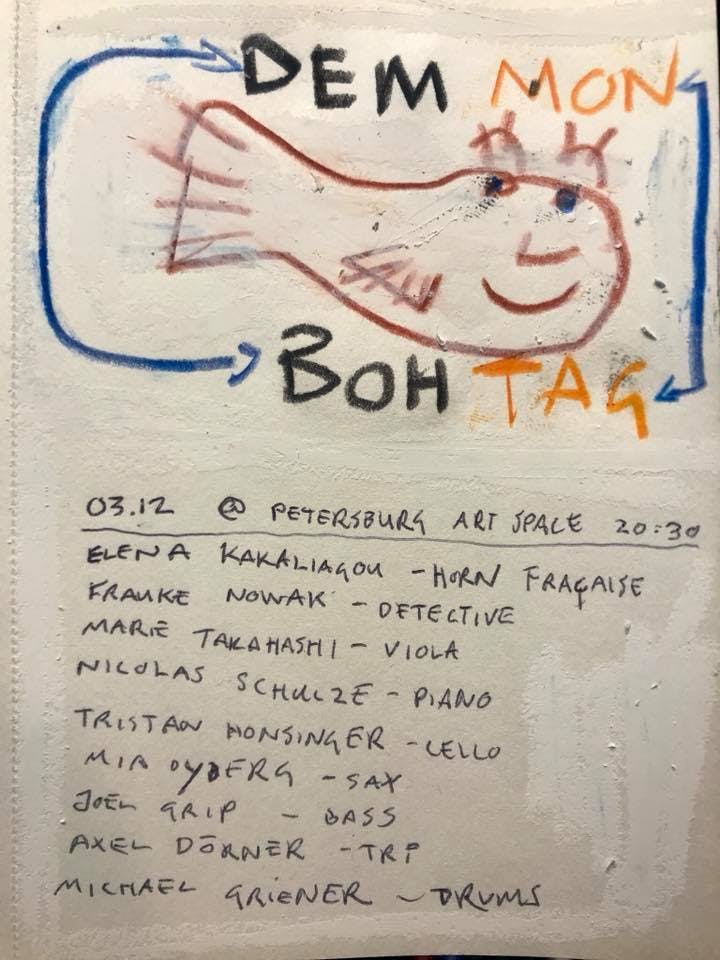 DEM MON
BOH TAG
03.12 @ PETERSBURG ART SPACE 20:30
ELENA KAKALIAGOU - HORN FRAÇAISE
FRAUKE NOWAK - DETECTIVE
MARIE TAKAHASHI - VIOLA
NICOLAS SCHULZE - PIANO
TRISTAN HONSINGER - CELLO
MIA DYBERG - SAX
JOEL GRIP - BASS
AXEL DÖRNER - TRP
MICHAEL GRIENER - DRUMS